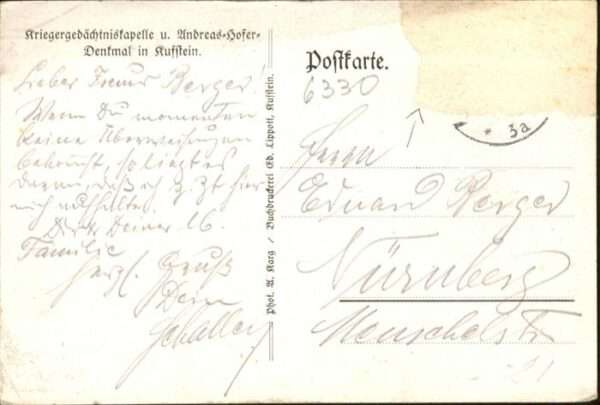 Kriegergedächtniskapelle u. Andreas-Hofer-
Denkmal in Kufstein.
Lieber Freund Berger!
Wenn Du momentan
keine Überweisungen
bekommst, so liegt es
daran, daß ich z. Zt hier
mich aufhalte.
Dir & Deiner lb.
Familie
herzl. Gruß
Dein
Schaller
Phot. A. Karg / Buchdruckerei Ed. Lippott, Kufstein.
Postkarte.
6330
* 3a
Herrn
Eduard Berger
Nürnberg
Menschelstr
21